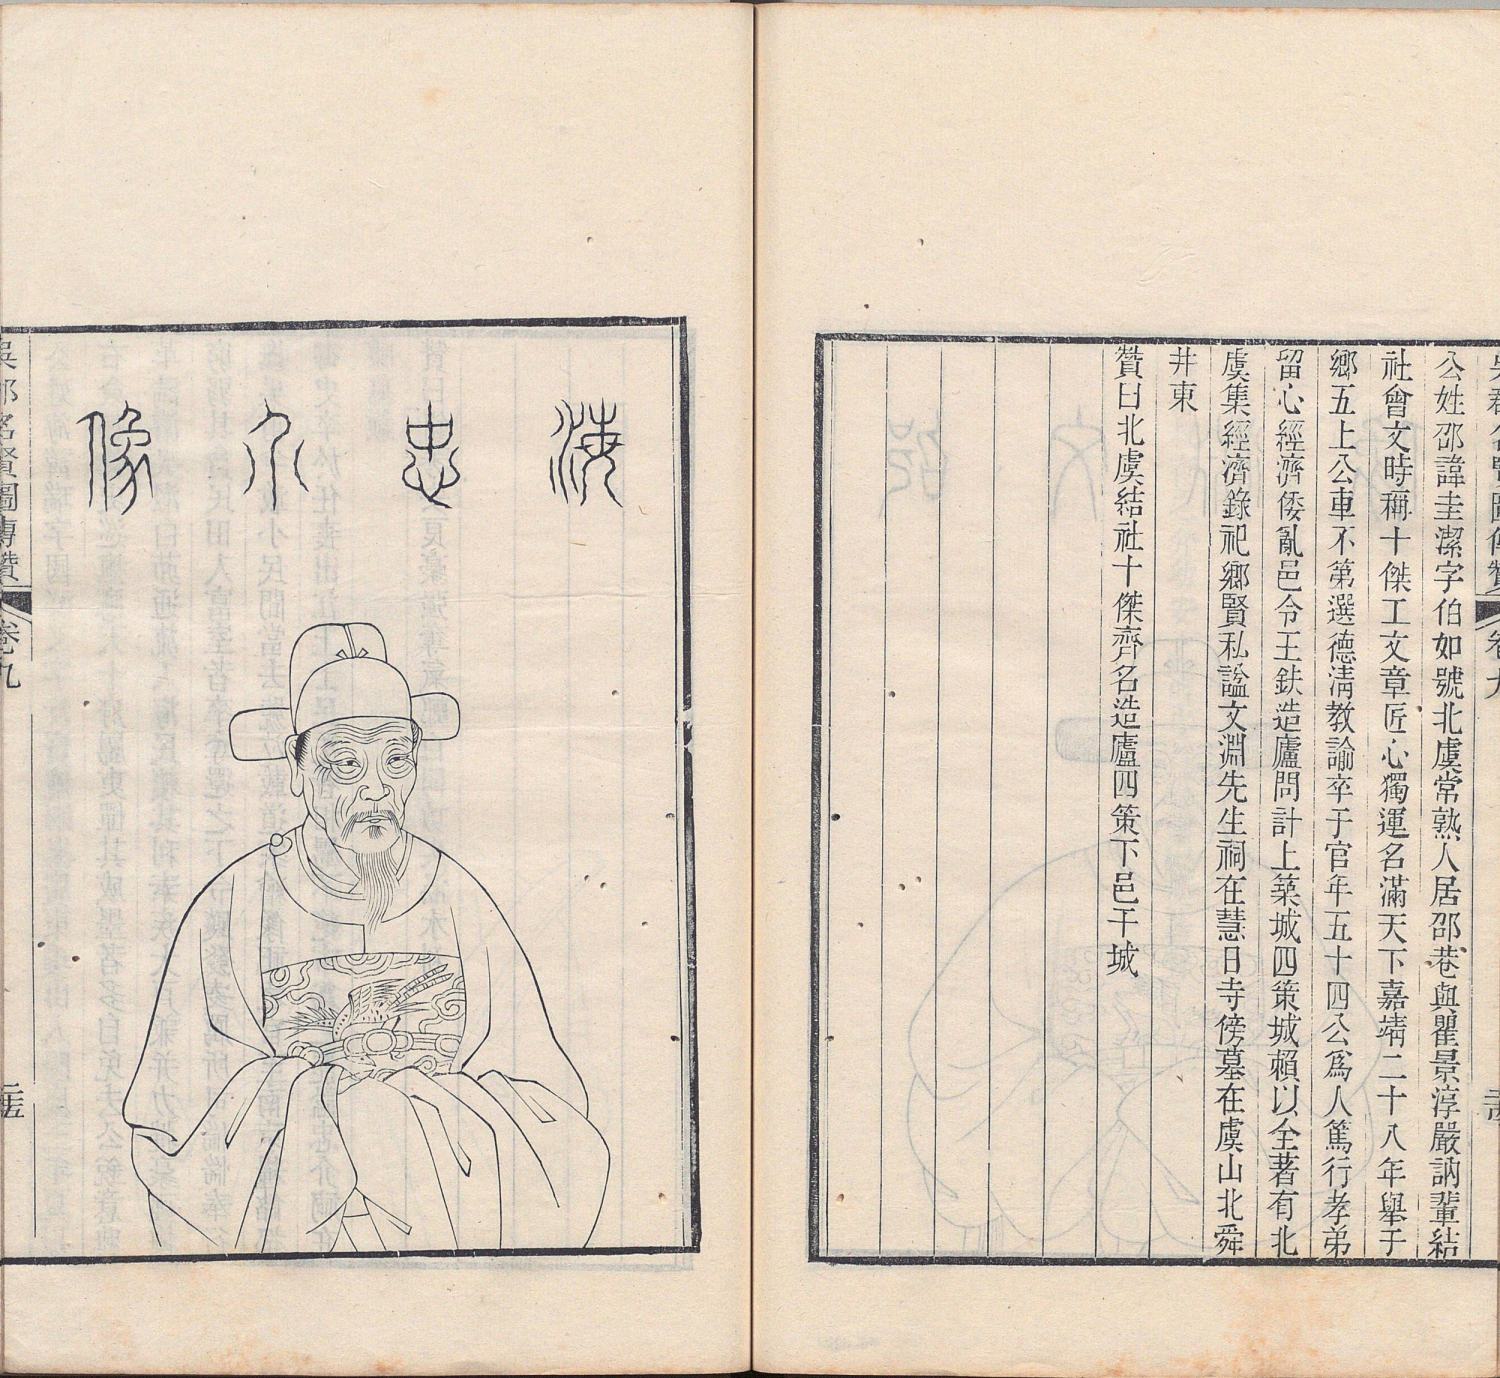 公姓邵諱圭潔字伯如號北虞常熟人居邵巷與瞿景淳嚴訥輩結
社會文時稱十傑工文章匠心獨運名滿天下嘉靖二十八年舉于
鄉五上公車不第選德清教諭卒于官年五十四公為人篤行孝弟
留心經濟倭亂邑令王鈇造廬問計上築城四策城賴以全著有北
虞集經濟錄祀鄉賢私諡文淵先生祠在慧日寺傍墓在虞山北舜
井東
贊曰北虞結社十傑齊名造廬四策下邑干城
海忠介像
吳郡名賢圖傳贊 卷九